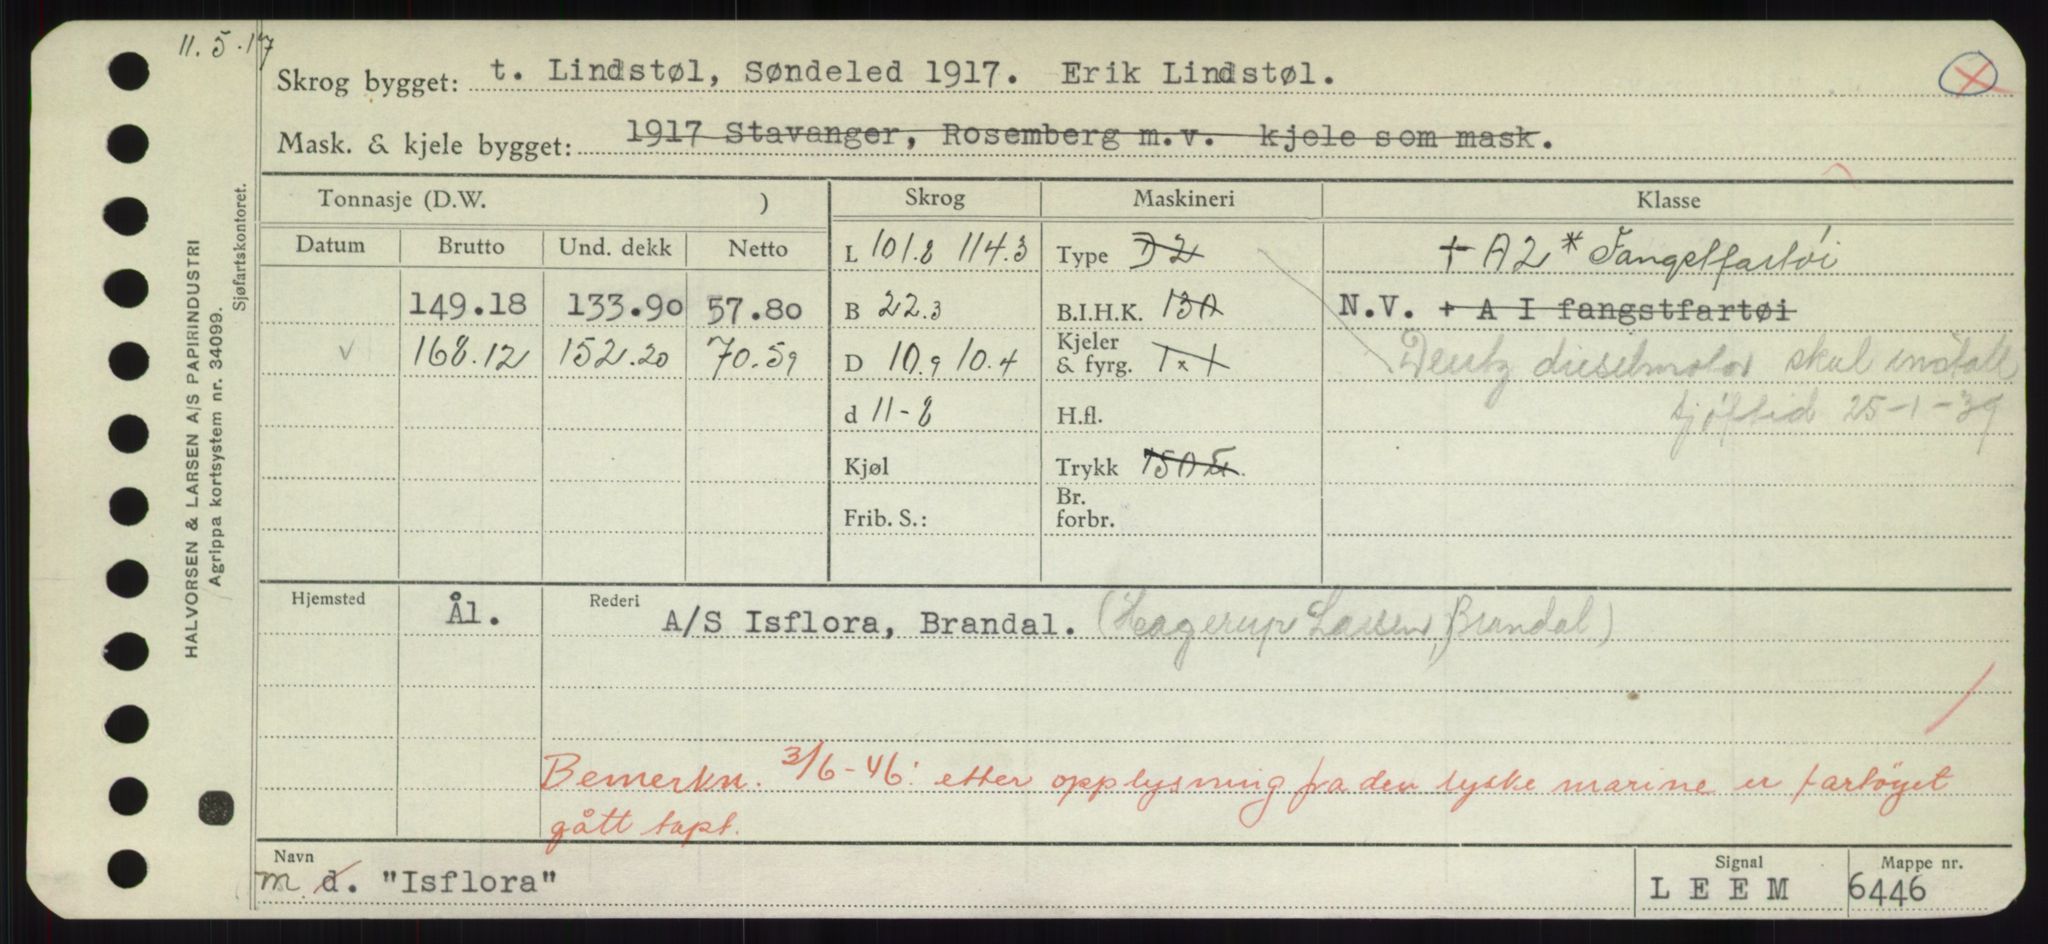 11.5.17
Skrog bygget: t. Lindstøl, Søndeled 1917. Erik Lindstøl.
Mask. & kjele bygget: 1917 Stavanger, Rosemberg m.v. kjele som mask.
Tonnasje (D.W. ) Skrog Maskineri Klasse
Datum Brutto Und. dekk Netto L 101.8 114.3 Type D2 + A2 * Fangstfartöi
149.18 133.90 57.80 B 22.3 B.I.H.K. 130 N.V. + A I fangstfartøi
v 168.12 152.20 70.59 D 10.9 10.4 Kjeler & fyrg. 1 x 1 Deutz dieselmotor skal install
d 11-8 H.fl. sjöftid 25-1-39
Kjøl Trykk 150
Frib. S.: Br. forbr.
Hjemsted Ål. Rederi A/S Isflora, Brandal. (Hagerup Larsen, Brandal)
Bemerkn. 3/6-46: etter opplysning fra den tyske marine er fartöyet
gått tapt.
Navn Signal Mappe nr.
m d. "Isflora" L E E M 6446
HALVORSEN & LARSEN A/S PAPIRINDUSTRI
Agrippa kortsystem nr. 34099.
Sjøfartskontoret.